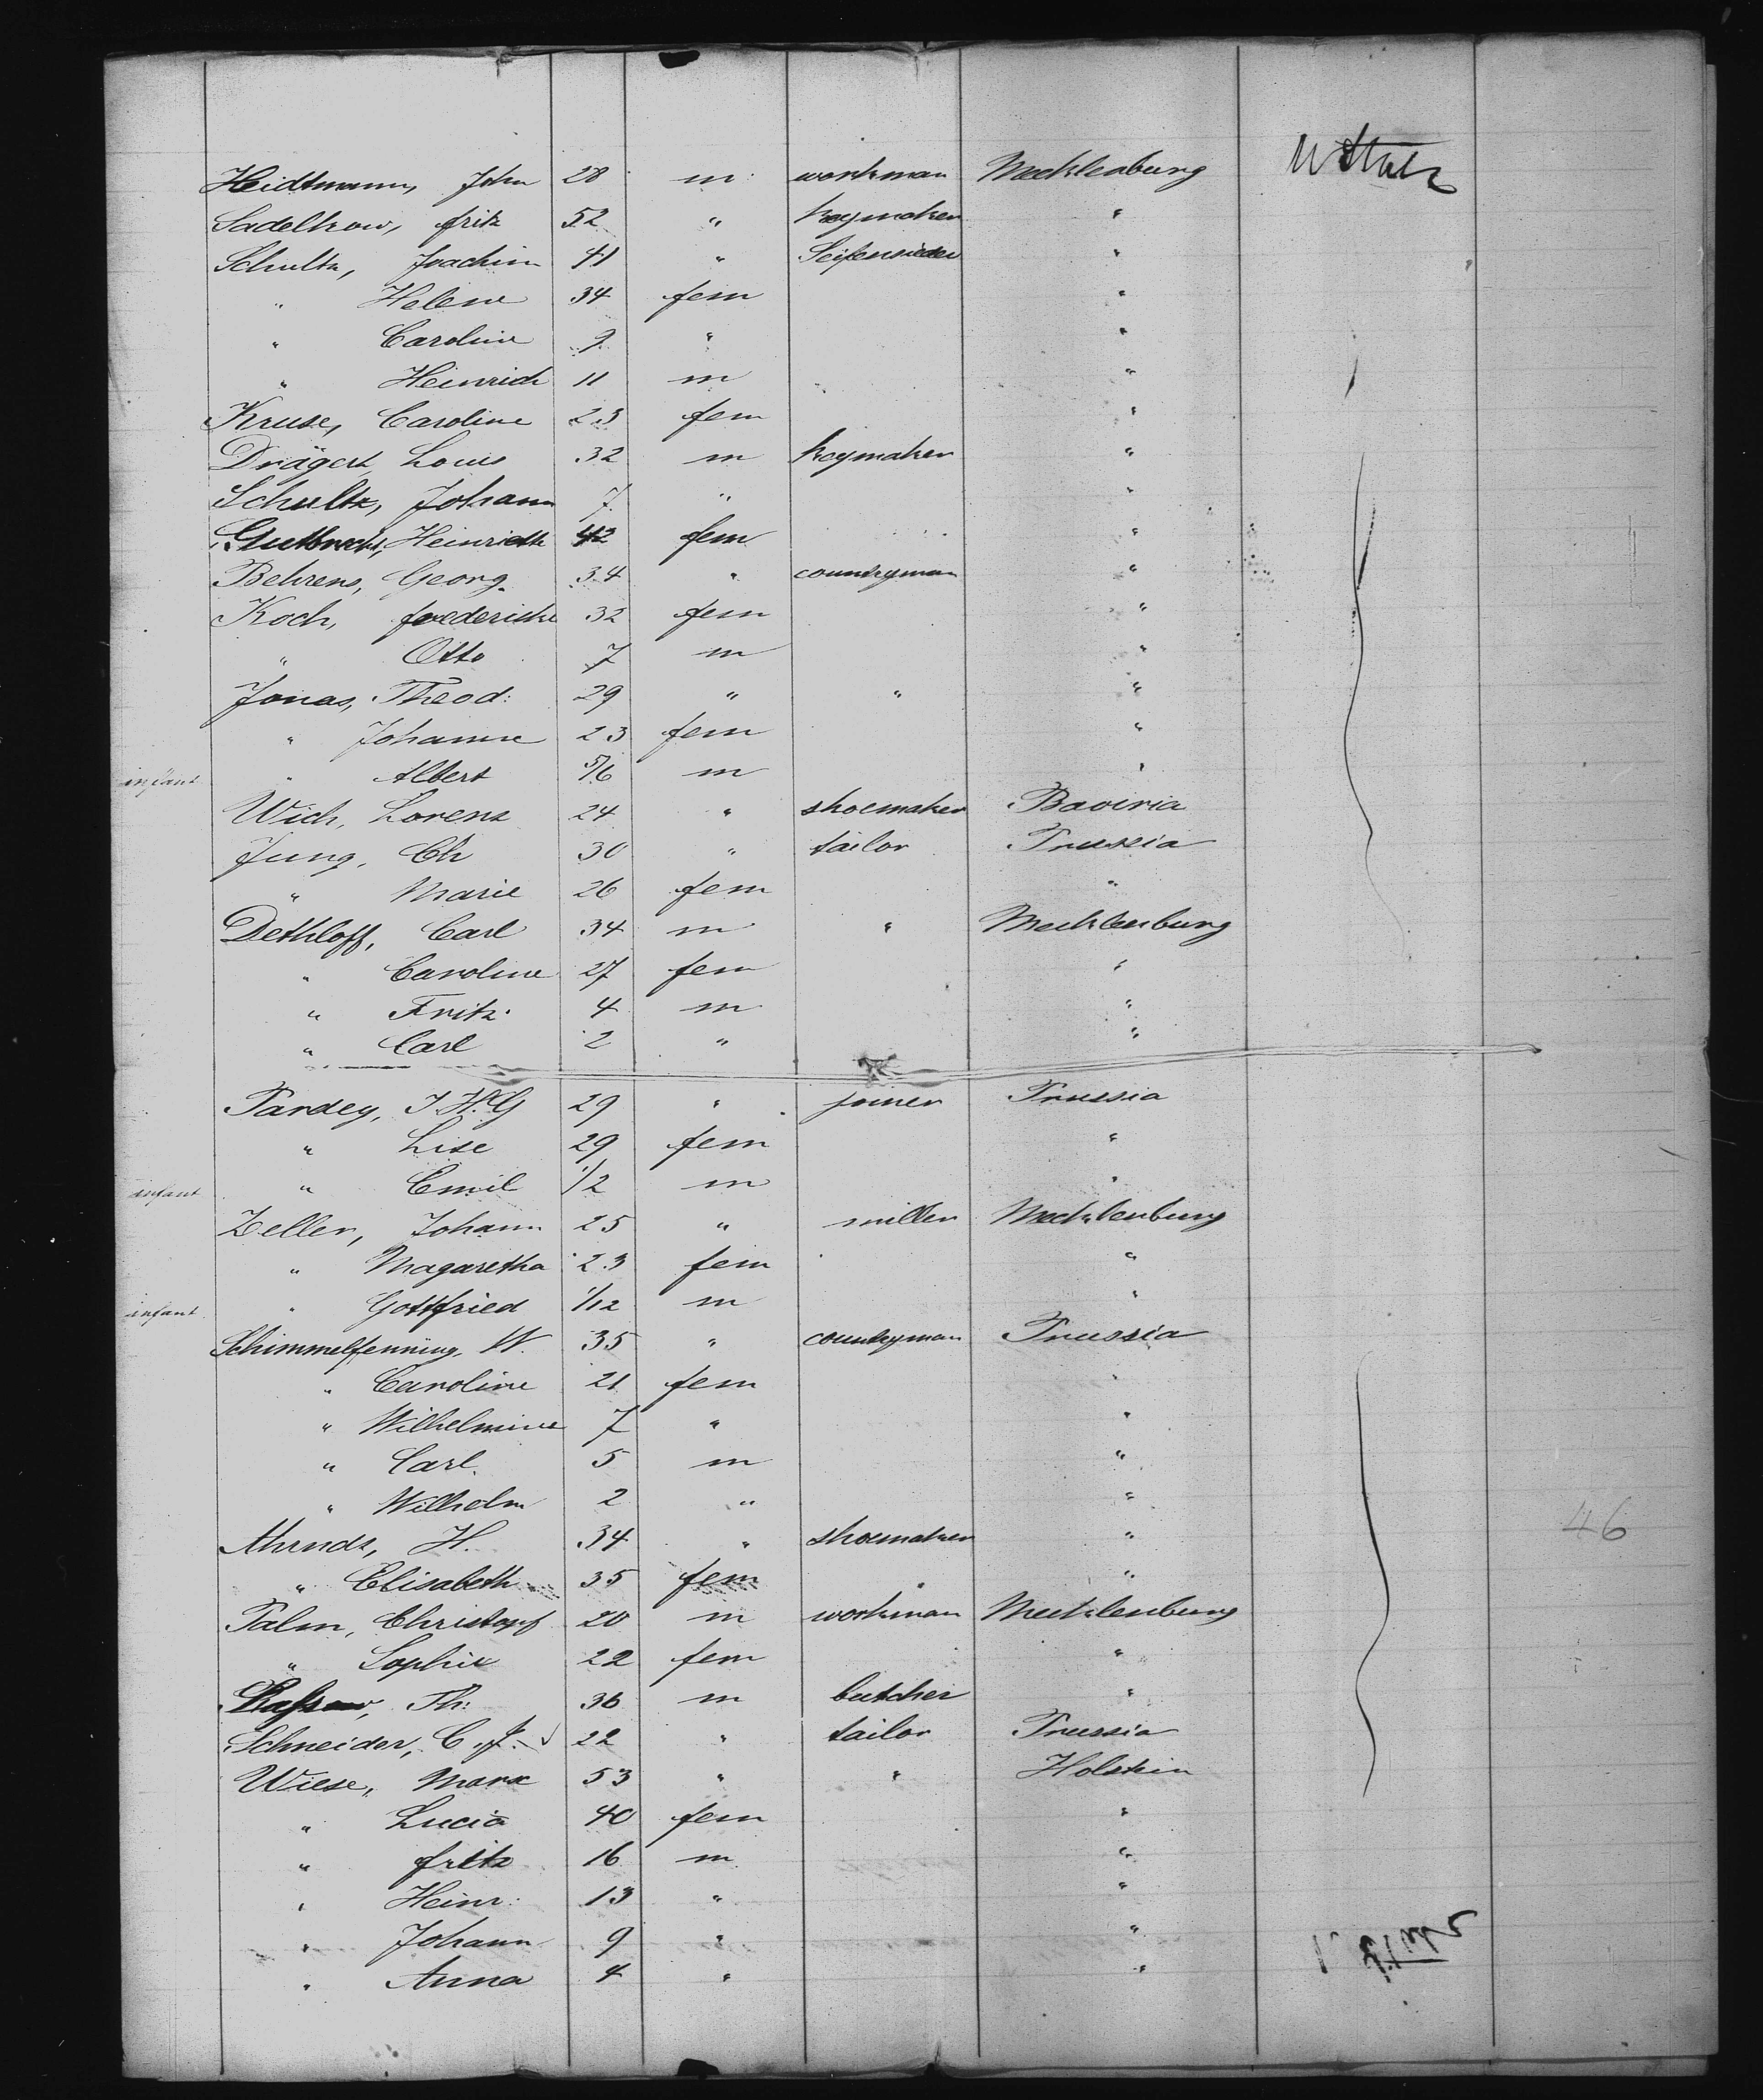 Heidtmann, John 28 m workman Mecklenburg U States
Sadelkow, fritz 52 " keymaker "
Schultz, Joachim 41 " Seifensieder "
" Helene 34 fem "
" Caroline 9 " "
" Heinrich 11 m "
Kruse, Caroline 23 fem "
Drägert, Louis 32 m keymaker "
Schultz, Johann 7 " "
Heinrich 42 fem "
Behrens, Georg 34 " countryman "
Koch, frederike 32 fem "
" Otto 7 m "
Jonas, Theod: 29 " " "
" Johanne 23 fem "
infant " Albert 5/6 m "
Wich, Lorenz 24 " shoemaker Baviria
Jung, Ch 30 " tailor Prussia
" Marie 26 fem "
Dethloff, Carl 34 m " Mecklenburg
" Caroline 27 fem "
" Fritz 4 m "
" Carl 2 " "
Pardey, J. H. G 29 " joiner Prussia
" Lise 29 fem "
infant " Emil 1/2 m "
Zeller, Johann 25 " miller Mecklenburg
" Magaretha 23 fem "
infant " Gottfried 1/12 m "
Schimmelfenning, W. 35 " countryman Prussia
" Caroline 21 fem "
" Wilhelmine 7 " "
" Carl 5 m "
" Wilhelm 2 " "
Ahrndt, H. 34 " shoemaker " 46
" Elisabeth 35 fem "
Palm, Christopf 20 m workman Mecklenburg
" Sophie 22 fem "
Th: 36 m butcher "
Schneider, C. J. 22 " tailor Prussia
Wiese, Marx 53 " " Holstein
" Lucia 40 fem "
" fritz 16 m "
" Heinr: 13 " "
" Johann 9 " "
" Anna 4 " "